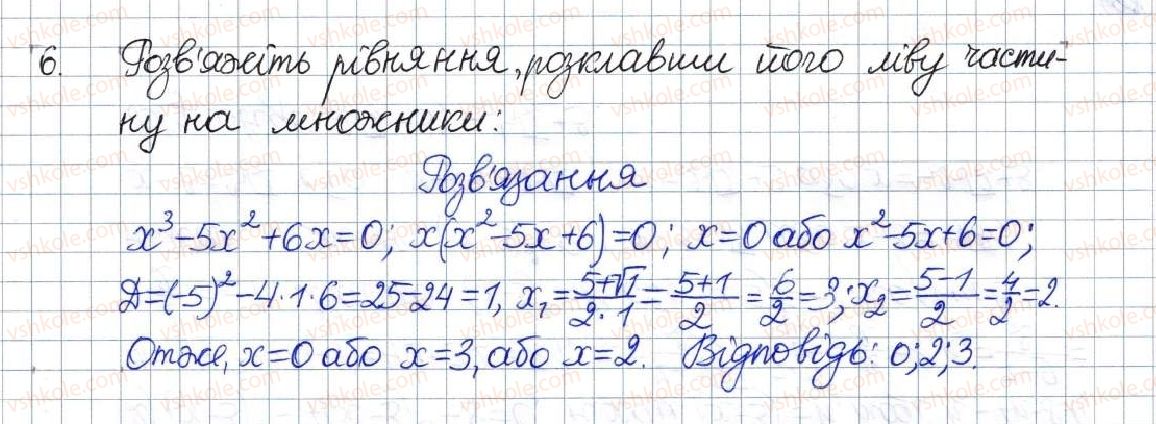 6. Розв'яжіть рівняння, розклавши його ліву части-
ну на множники:
Розв'язання
x³-5x²+6x=0; x(x²-5x+6)=0; x=0 або x²-5x+6=0;
Д=(-5)²-4·1·6=25-24=1, x₁=(5+√1)/(2·1)=(5+1)/2=6/2=3; x₂=(5-1)/2=4/2=2.
Отже, x=0 або x=3, або x=2. Відповідь: 0; 2; 3.